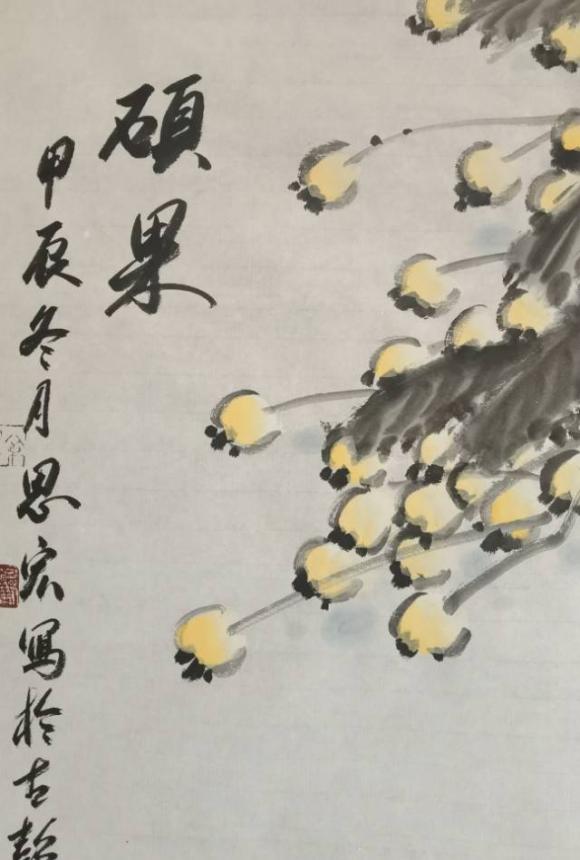 碩果
甲辰冬月思宏寫於古彭